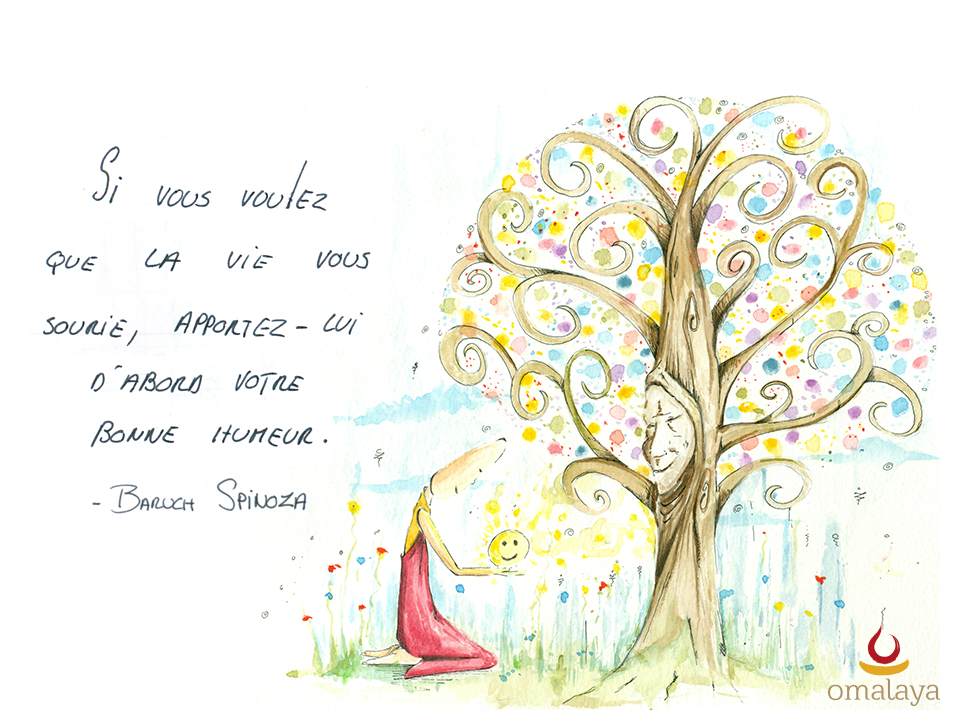 Si vous voulez
que la vie vous
sourie, apportez-lui
d'abord votre
bonne humeur.
- Baruch Spinoza
omalaya